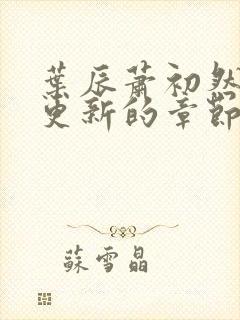 葉辰蕭初然
更新的章節
蘇雪晶